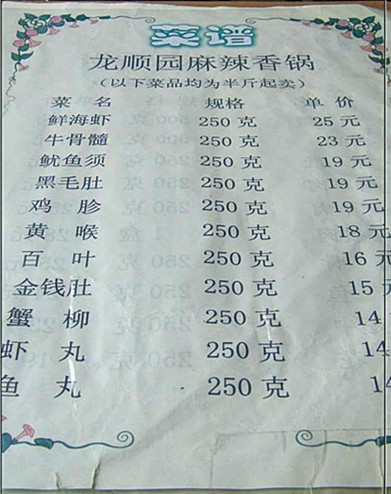 菜谱
龙顺园麻辣香锅
(以下菜品均为半斤起卖)
菜 名 规格 单价
鲜海虾 250克 25元
牛骨髓 250克 23元
鱿鱼须 250克 19元
黑毛肚 250克 19元
鸡胗 250克 19元
黄喉 250克 18元
百叶 250克 16元
金钱肚 250克 15元
蟹柳 250克 14
虾丸 250克 14
鱼丸 250克 14